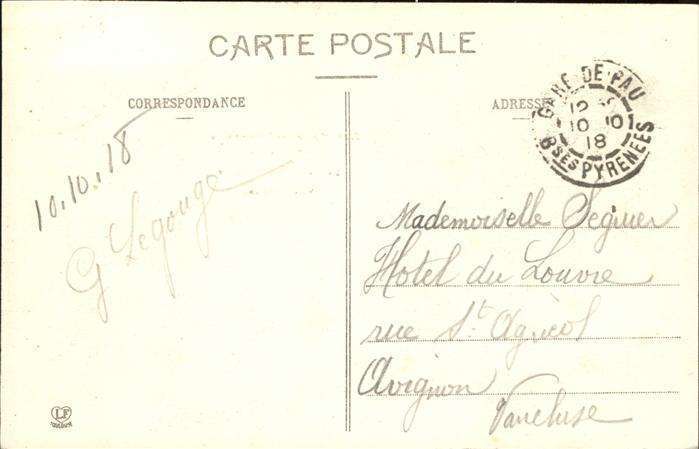 CARTE POSTALE
CORRESPONDANCE
ADRESSE
GARE DE PAU
12
10 10
18
Bses PYRENEES
10.10.18
G Legouge
Mademoiselle Seguier
Hotel du Louvre
rue St Agricol
Avignon
Vaucluse
LF